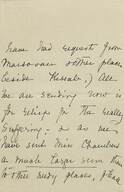 have had request from
Marsovan & other places
beside Kessab, All
we are sending now is
for relief for the really
suffering - & as we
have sent Miss Chambers
a much larger sum than
to other needy places,